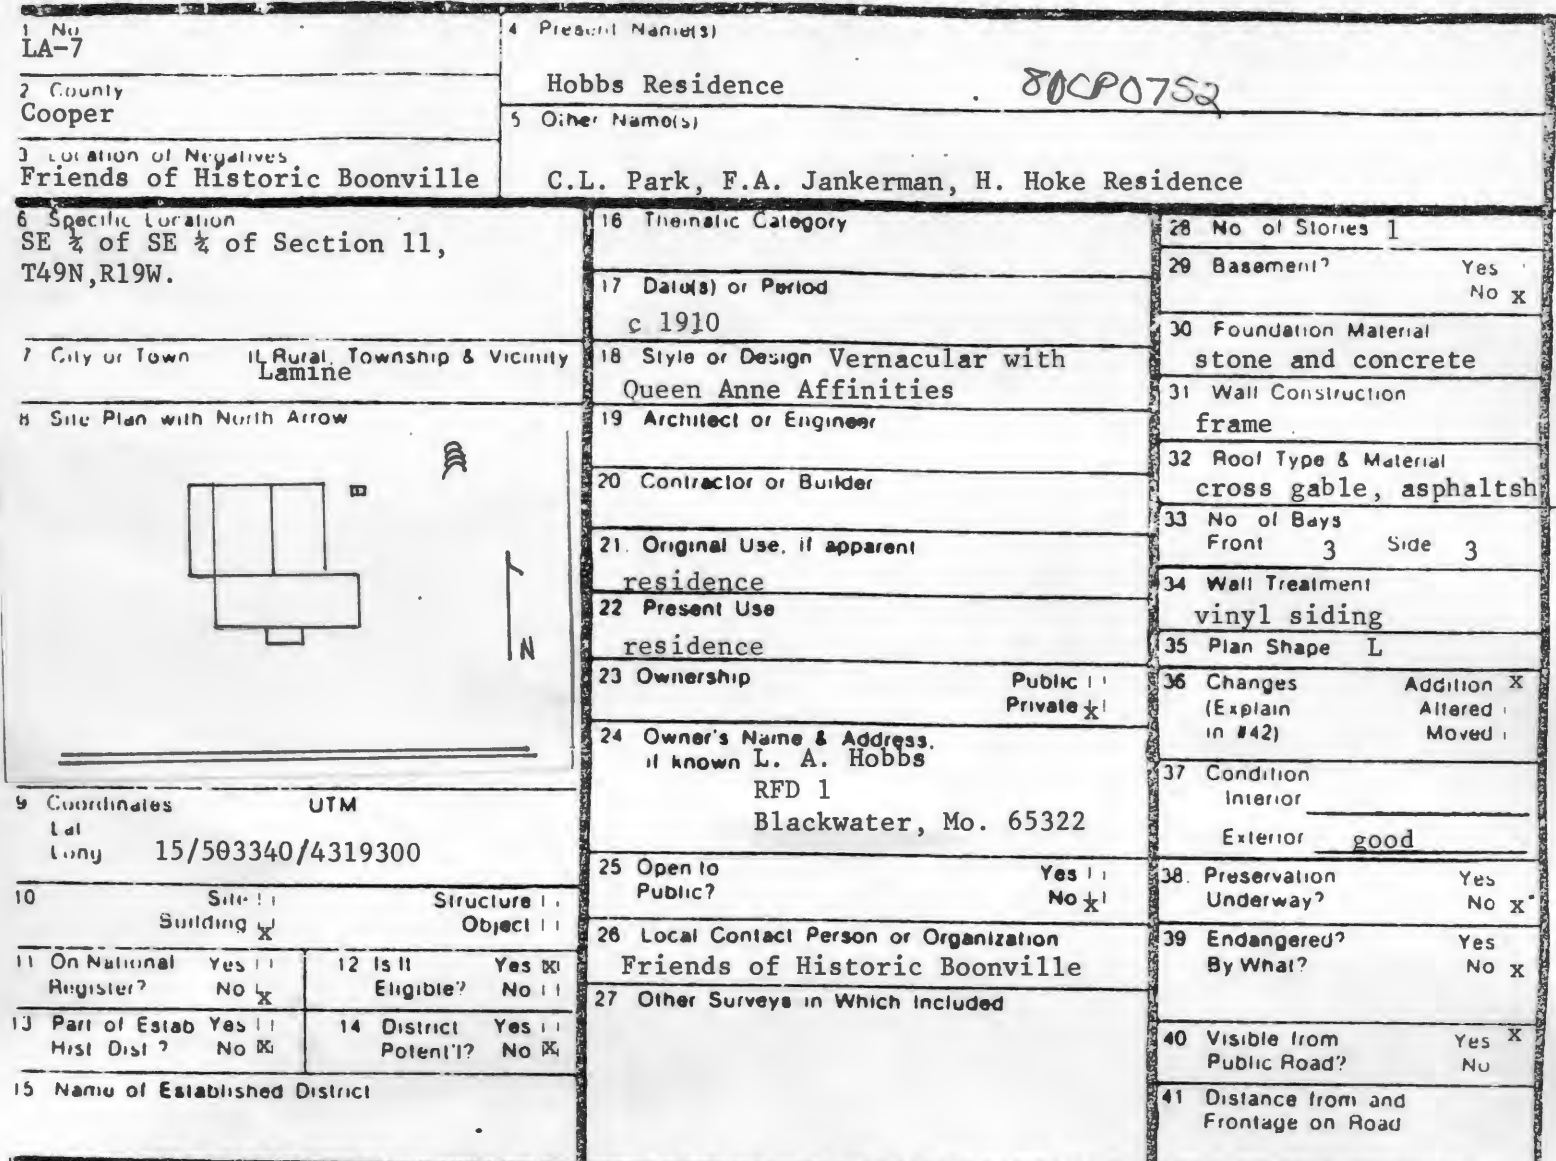 1 No
LA-7
2 County
Cooper
3 Location of Negatives
Friends of Historic Boonville
4 Present Name(s)
Hobbs Residence
80CP0752
5 Other Name(s)
C.L. Park, F.A. Jankerman, H. Hoke Residence
6 Specific Location
SE ¼ of SE ¼ of Section 11,
T49N,R19W.
7 City or Town If Rural, Township & Vicinity
Lamine
8 Site Plan with North Arrow
N
9 Coordinates UTM
Lat
Long 15/503340/4319300
10 Site Structure
Building x Object
11 On National Yes
Register? No x
12 Is It Yes x
Eligible? No
13 Part of Estab Yes
Hist Dist? No x
14 District Yes
Potent'l? No x
15 Name of Established District
16 Thematic Category
17 Date(s) or Period
c 1910
18 Style or Design Vernacular with
Queen Anne Affinities
19 Architect or Engineer
20 Contractor or Builder
21. Original Use, if apparent
residence
22 Present Use
residence
23 Ownership Public
Private x
24 Owner's Name & Address,
if known L. A. Hobbs
RFD 1
Blackwater, Mo. 65322
25 Open to Yes
Public? No x
26 Local Contact Person or Organization
Friends of Historic Boonville
27 Other Surveys in Which Included
28 No of Stories 1
29 Basement? Yes
No x
30 Foundation Material
stone and concrete
31 Wall Construction
frame
32 Roof Type & Material
cross gable, asphaltsh
33 No of Bays
Front 3 Side 3
34 Wall Treatment
vinyl siding
35 Plan Shape L
36 Changes Addition x
(Explain Altered
in #42) Moved
37 Condition
Interior
Exterior good
38. Preservation Yes
Underway? No x
39 Endangered? Yes
By What? No x
40 Visible from Yes x
Public Road? No
41 Distance from and
Frontage on Road